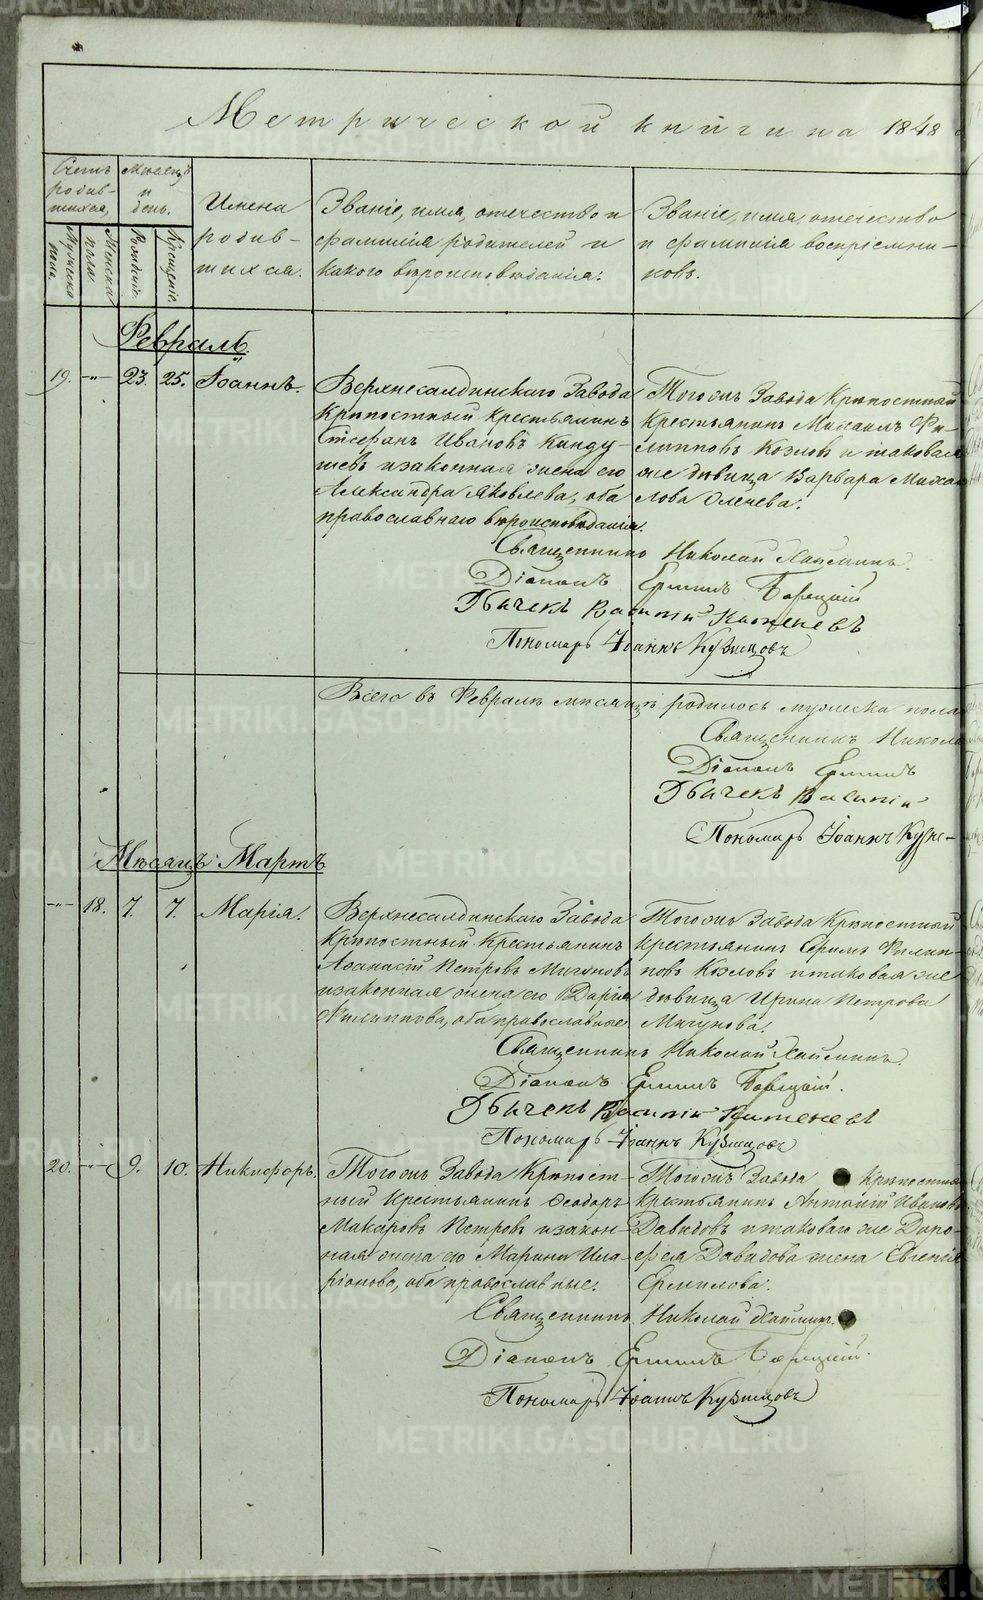 Метрической книги на 1848
Счетъ родив-шихся,
Мужеска пола.
Женска пола.
Месяцъ и день.
Рожденiе.
Крещенiе.
Имена родив-шихся.
Званiе, имя, отечество и фамилiя родителей и какого вѣроисповѣданiя.
Званiе, имя, отечество и фамилiя воспрiемни-ковъ.
Февраль.
19. -"- 23. 25. Iоаннъ.
Верхнесалдинскаго Завода
Крѣпостный крестьянинъ
Стефанъ Ивановъ
и законная жена его
Александра Яковлева, оба
православнаго вѣроисповѣданiя.
Тогожъ Завода Крѣпостный
Крестьянинъ Михаилъ Фи-
липповъ Козловъ и таковая
же дѣвица Варвара Михай
лова
Священникъ Николай
Дiаконъ Ермилъ
Дьячекъ Василiй
Пономарь Iоаннъ Кузнецовъ
Всего въ Февралѣ мѣсяцѣ родилось мужеска пола
Священникъ Никола
Дiаконъ Ермилъ
Дьячекъ Василiй
Пономарь Iоаннъ Кузне-
Мѣсяцъ Мартъ
-"- 18. 7. 7. Марiя.
Верхнесалдинскаго Завода
Крѣпостный Крестьянинъ
Аѳанасiй Петровъ Мигуновъ
и законная жена его Дарiя
Филиппова, оба православные.
Тогожъ Завода Крѣпостный
Крестьянинъ Филип-
повъ Козловъ и таковая же
дѣвица Ирина Петрова
Мигунова.
Священникъ Николай
Дiаконъ Ермилъ
Дьячекъ Василiй
Пономарь Iоаннъ Кузнецовъ
20. -"- 9. 10. Никифоръ.
Тогожъ Завода Крѣпост-
ный Крестьянинъ Ѳеодоръ
Макаровъ Петровъ и закон-
ная жена его Марина Ила-
рiонова, оба православные.
Тогожъ Завода Крѣпостны
Крестьянинъ Антонiй Ивановъ
Давидовъ и таковаго же Доро-
фея Давидова жена Евгенiя
Ермилова.
Священникъ Николай
Дiаконъ Ермилъ
Пономарь Iоаннъ Кузнецовъ
METRIKI.GASO-URAL.RU